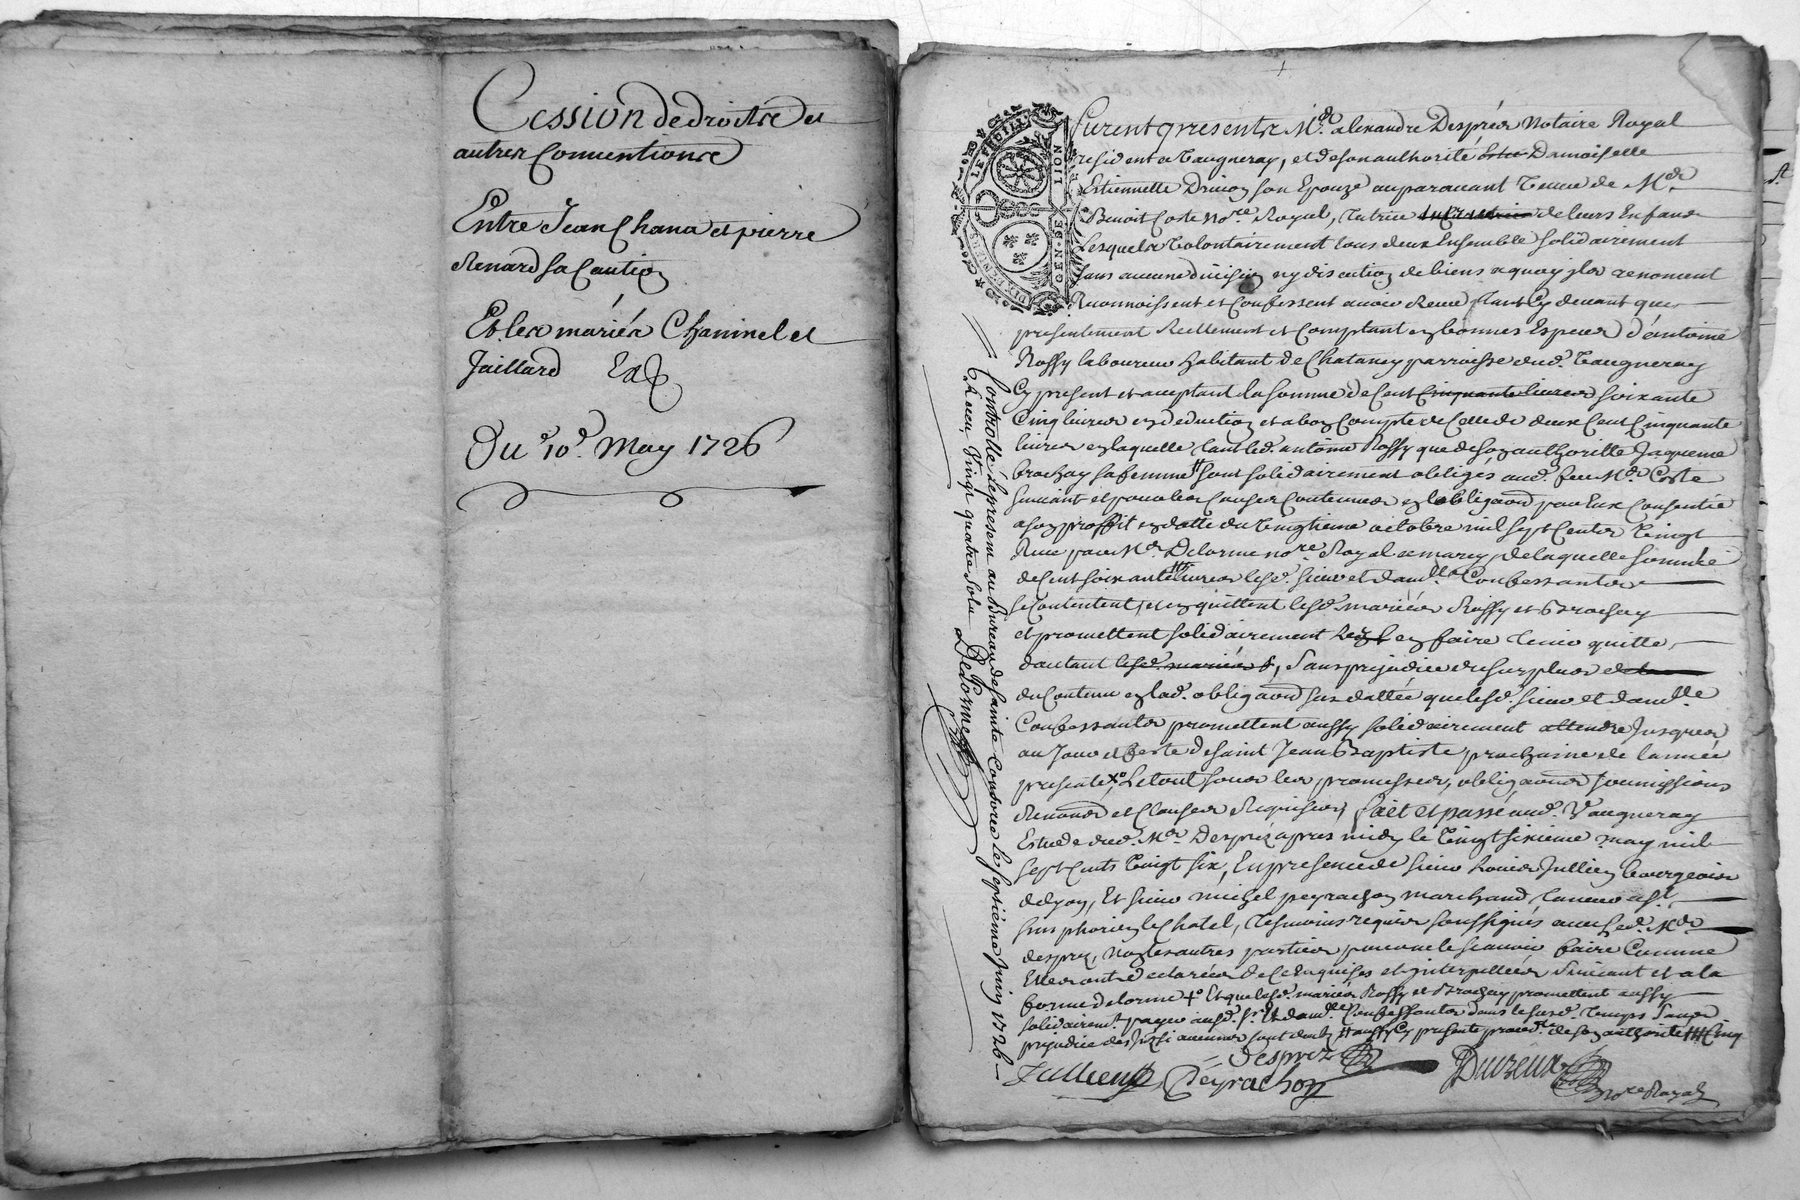 Cession de droitz et
autres Conventions
Entre Jean Chana et pierre
Renard sa Caution
Et les mariés Chaninel et
Jaillard
Du 10e. May 1726
LE FEUILL
GEN. DE LION
DIX DENIERS
furent presents Me. alexandre Desprès Notaire Royal
resident a Vaugneray, et de son authorité Damoiselle
Estiennette son Epouze auparavant veuve de Me.
Benoit Coste nore. Royal, tutrice de leurs Enfans
Lesquels volontairement tous deux Ensemble solidairement
sans aucune division ny discution de biens a quoy ils renoncent
Reconnoissent et Confessent avoir Receu cy devant que
presentement Reellement et Comptant en bonnes Especes d'antoine
Roffy laboureur habitant de Chatanay parroisse dud. Vaugneray
Cy present et acceptant la somme de Cent Cinquante livres soixante
Cinq livres en deduction et a bon Compte de Celle de deux Cent Cinquante
livres en laquelle led. antoine Roffy que de son authoritté Jaqueme
brochay sa femme sont solidairement obligés aud. feu Me. Coste
suivant et pour les Causes Contenues en lobligaon. par Eux Consentie
a son proffit en datte du vingtieme octobre mil sept Cents vingt
par Me. Delorme nore. Royal de laquelle somme
de Cent soixante livres lesd. sieur et damlle. Confessantes
se Contentent, et en quittent lesd. mariés Roffy et Brochay
et promettent solidairement en faire tenir quitte
dautant lesd. mariés, Sans prejudice du surplus
du Contenu en lad. obligaon. sus dattée que lesd. sieur et damlle.
Confessantes promettent aussy solidairement attendre Jusques
au Jour et feste de saint Jean Baptiste prochaine de lannée
presente, Le tout sous les promesses, obligaons. soumissions
Renons. et Clauses Requises, fait et passé aud. Vaugneray
Estude dud. Me. Desprez apres midy le vingt sixieme may mil
sept Cents vingt six, En presence de sieur Jullien bourgeois
de Lyon, Et sieur michel peyrachon marchand tanneur a St.
simphorien le Chatel, tesmoins requis soussignés avec led. Me.
desprez, non les autres parties pour ne le scavoir faire Comme
Elles ont declarées de Ce Enquises et interpellées Suivant et a la
forme de lorme Et que lesd. mariés Roffy et Brochay promettent aussy
solidairemt. payer ausd. sr. Et damlle. Confessantes dans le susd. temps sans
prejudice des aucuns sont deubs aussy Cy presente de son authorité Cinq
Desprez
Jullien
Peyrachon
nore. Royal
Controllé le present au Bureau de sainte Consorce le septième Juin 1726
Receu, vingt quatre sols Delorme